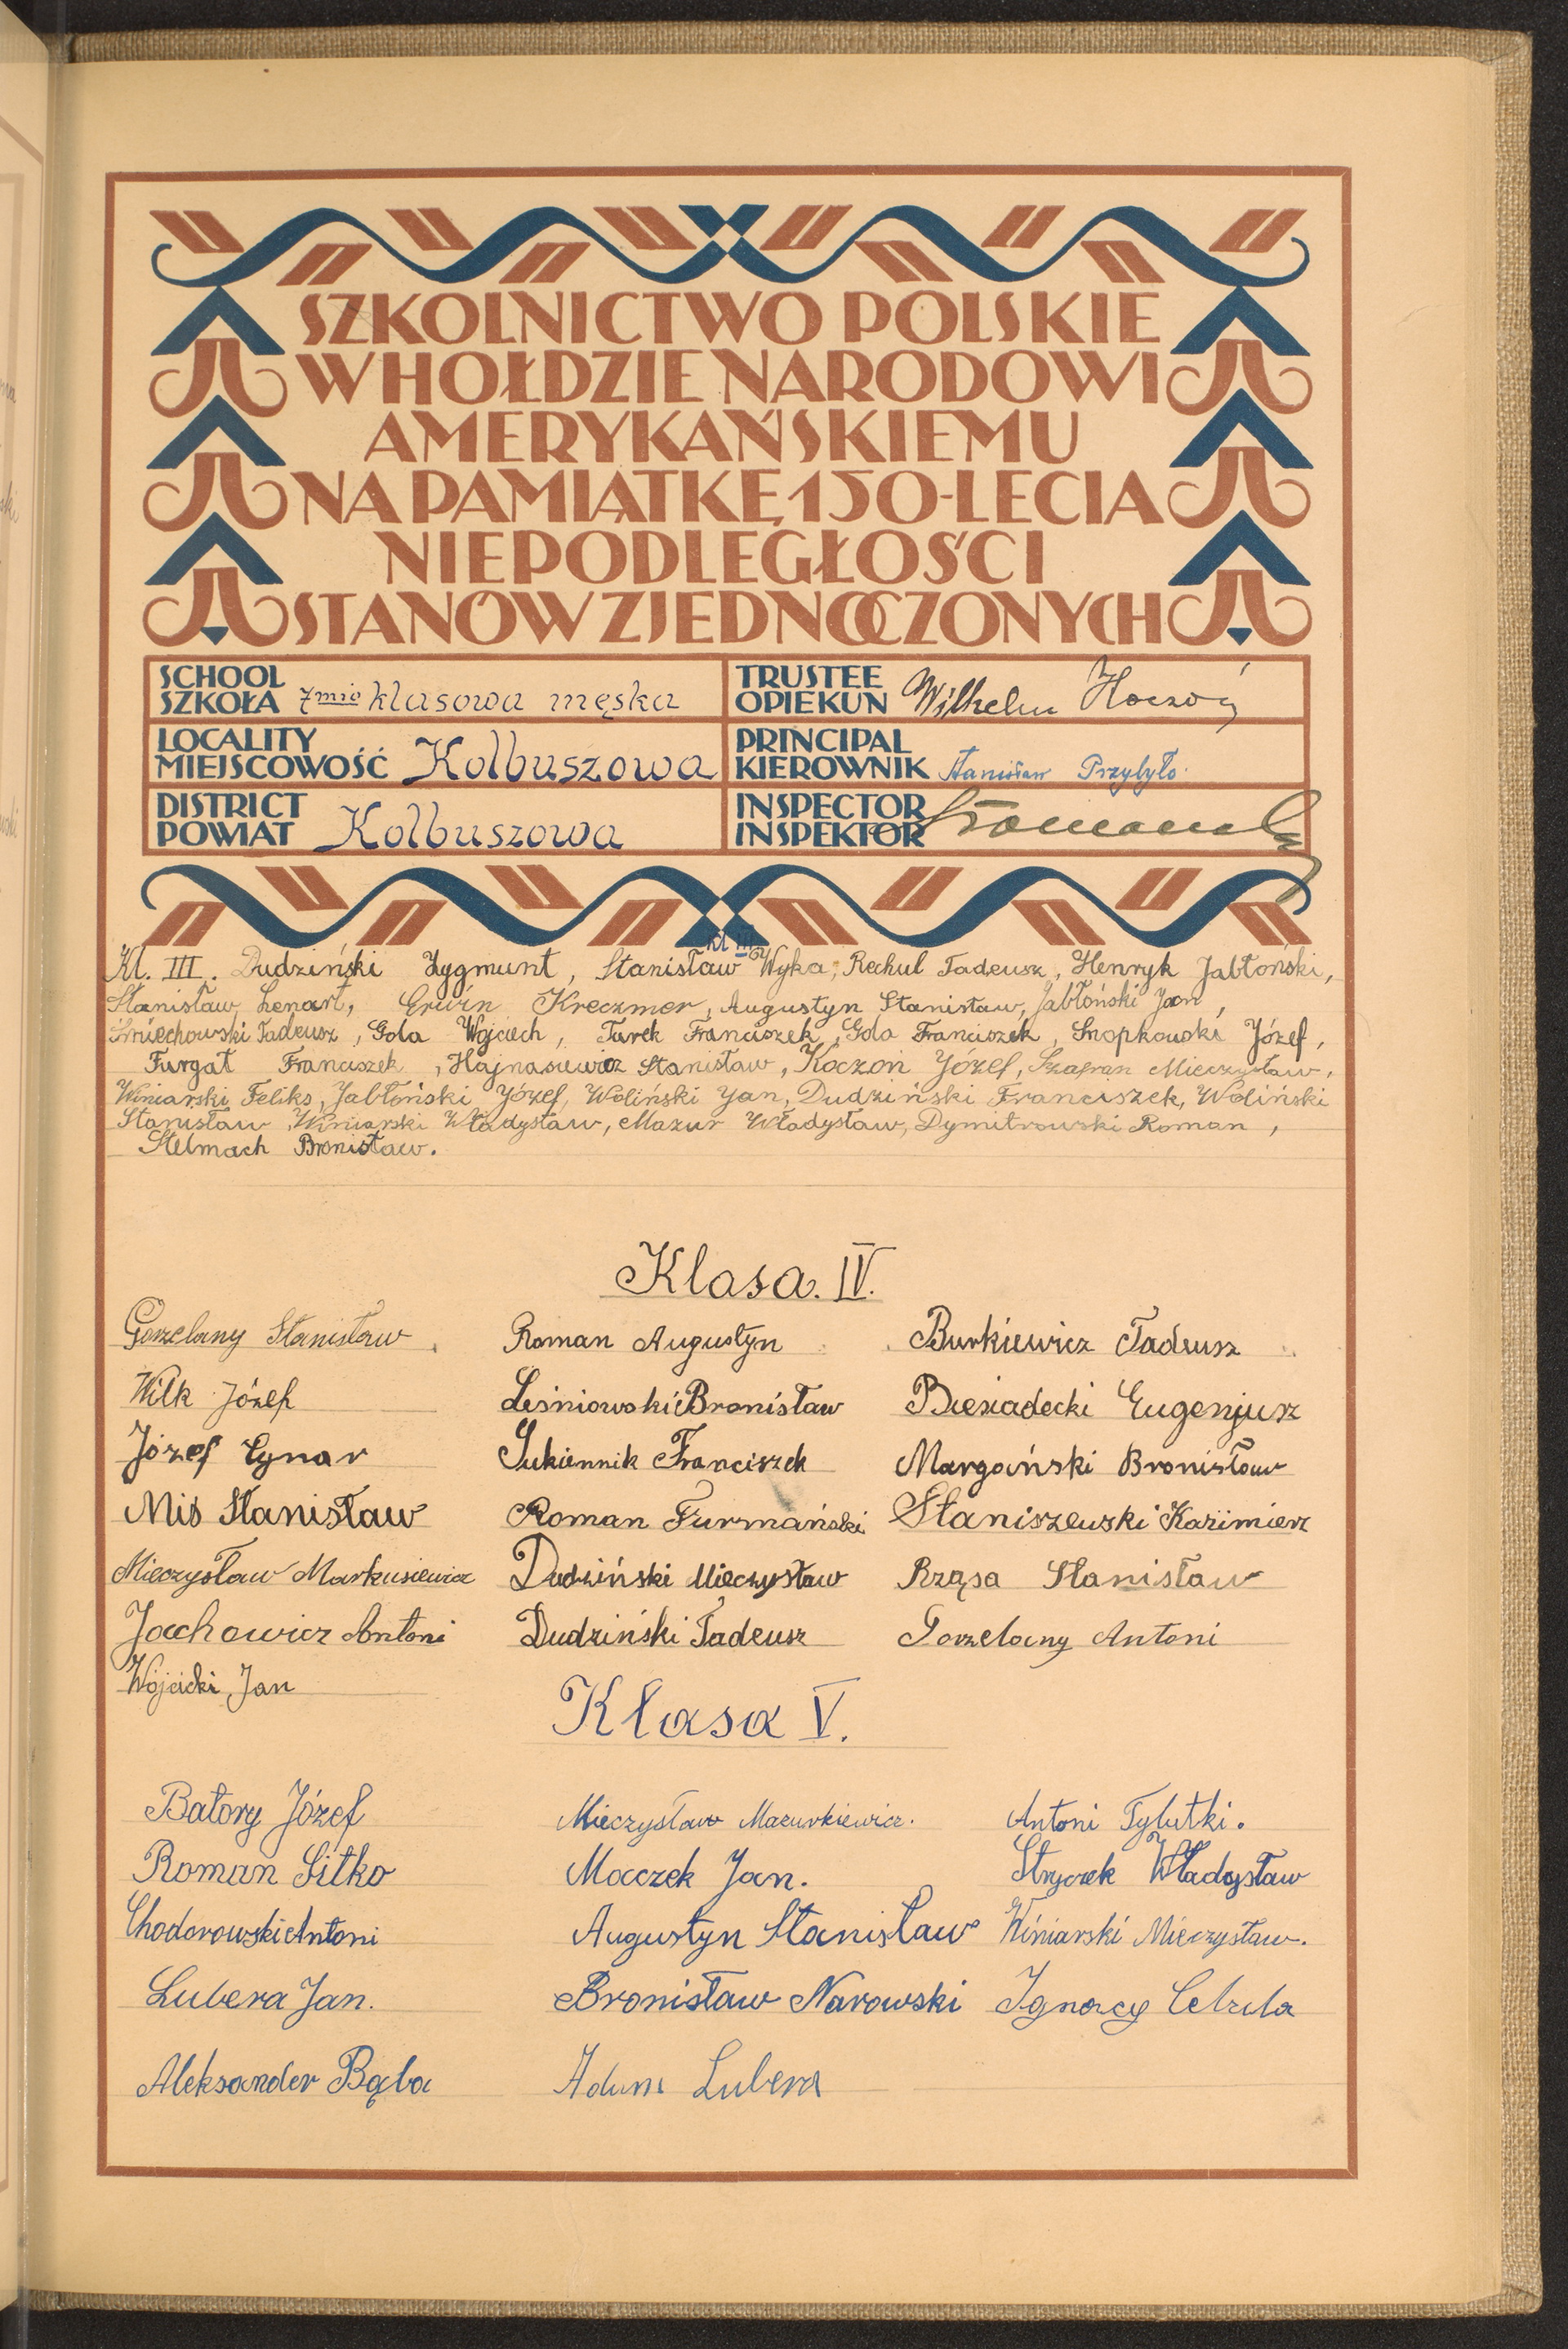 SZKOLNICTWO POLSKIE
W HOŁDZIE NARODOWI
AMERYKAŃSKIEMU
NA PAMIĄTKĘ 150-LECIA
NIEPODLEGŁOŚCI
STANÓW ZJEDNOCZONYCH
SCHOOL
SZKOŁA 7mio klasowa męska
TRUSTEE
OPIEKUN Wilhelm
LOCALITY
MIEJSCOWOŚĆ Kolbuszowa
PRINCIPAL
KIEROWNIK Stanisław Przybyło
DISTRICT
POWIAT Kolbuszowa
INSPECTOR
INSPEKTOR
kl III
Kl. III. Dudziński Zygmunt, Stanisław Wyka, Rechul Tadeusz, Henryk Jabłoński,
Stanisław Lenart, Erwin Kreczmer, Augustyn Stanisław, Jabłoński Jan,
Śmiechowski Tadeusz, Gola Wojciech, Turek Franciszek, Gola Franciszek, Snopkowski Józef,
Furgat Franciszek, Hajnasiewicz Stanisław, Koczoń Józef, Szafran Mieczysław,
Winiarski Feliks, Jabłoński Józef, Woliński Jan, Dudziński Franciszek, Woliński
Stanisław, Winiarski Władysław, Mazur Władysław, Dymitrowski Roman,
Stelmach Bronisław.
Klasa. IV.
Gorzelany Stanisław Roman Augustyn Burkiewicz Tadeusz
Wilk Józef Leśniowski Bronisław Biesiadecki Eugenjusz
Józef Cynar Sukiennik Franciszek Margański Bronisław
Mis Stanisław Roman Furmański Staniszewski Kazimierz
Mieczysław Markusiewicz Dudziński Mieczysław Rząsa Stanisław
Jachowicz Antoni Dudziński Tadeusz Gorzelany Antoni
Wójcicki Jan
Klasa V.
Batory Józef Mieczysław Mazurkiewicz. Antoni Tylutki.
Roman Sitko Maczek Jan. Stryczek Władysław
Chodorowski Antoni Augustyn Stanisław Winiarski Mieczysław.
Lubera Jan. Bronisław Narowski Ignacy Cebula
Aleksander Bąba Adam Lubera